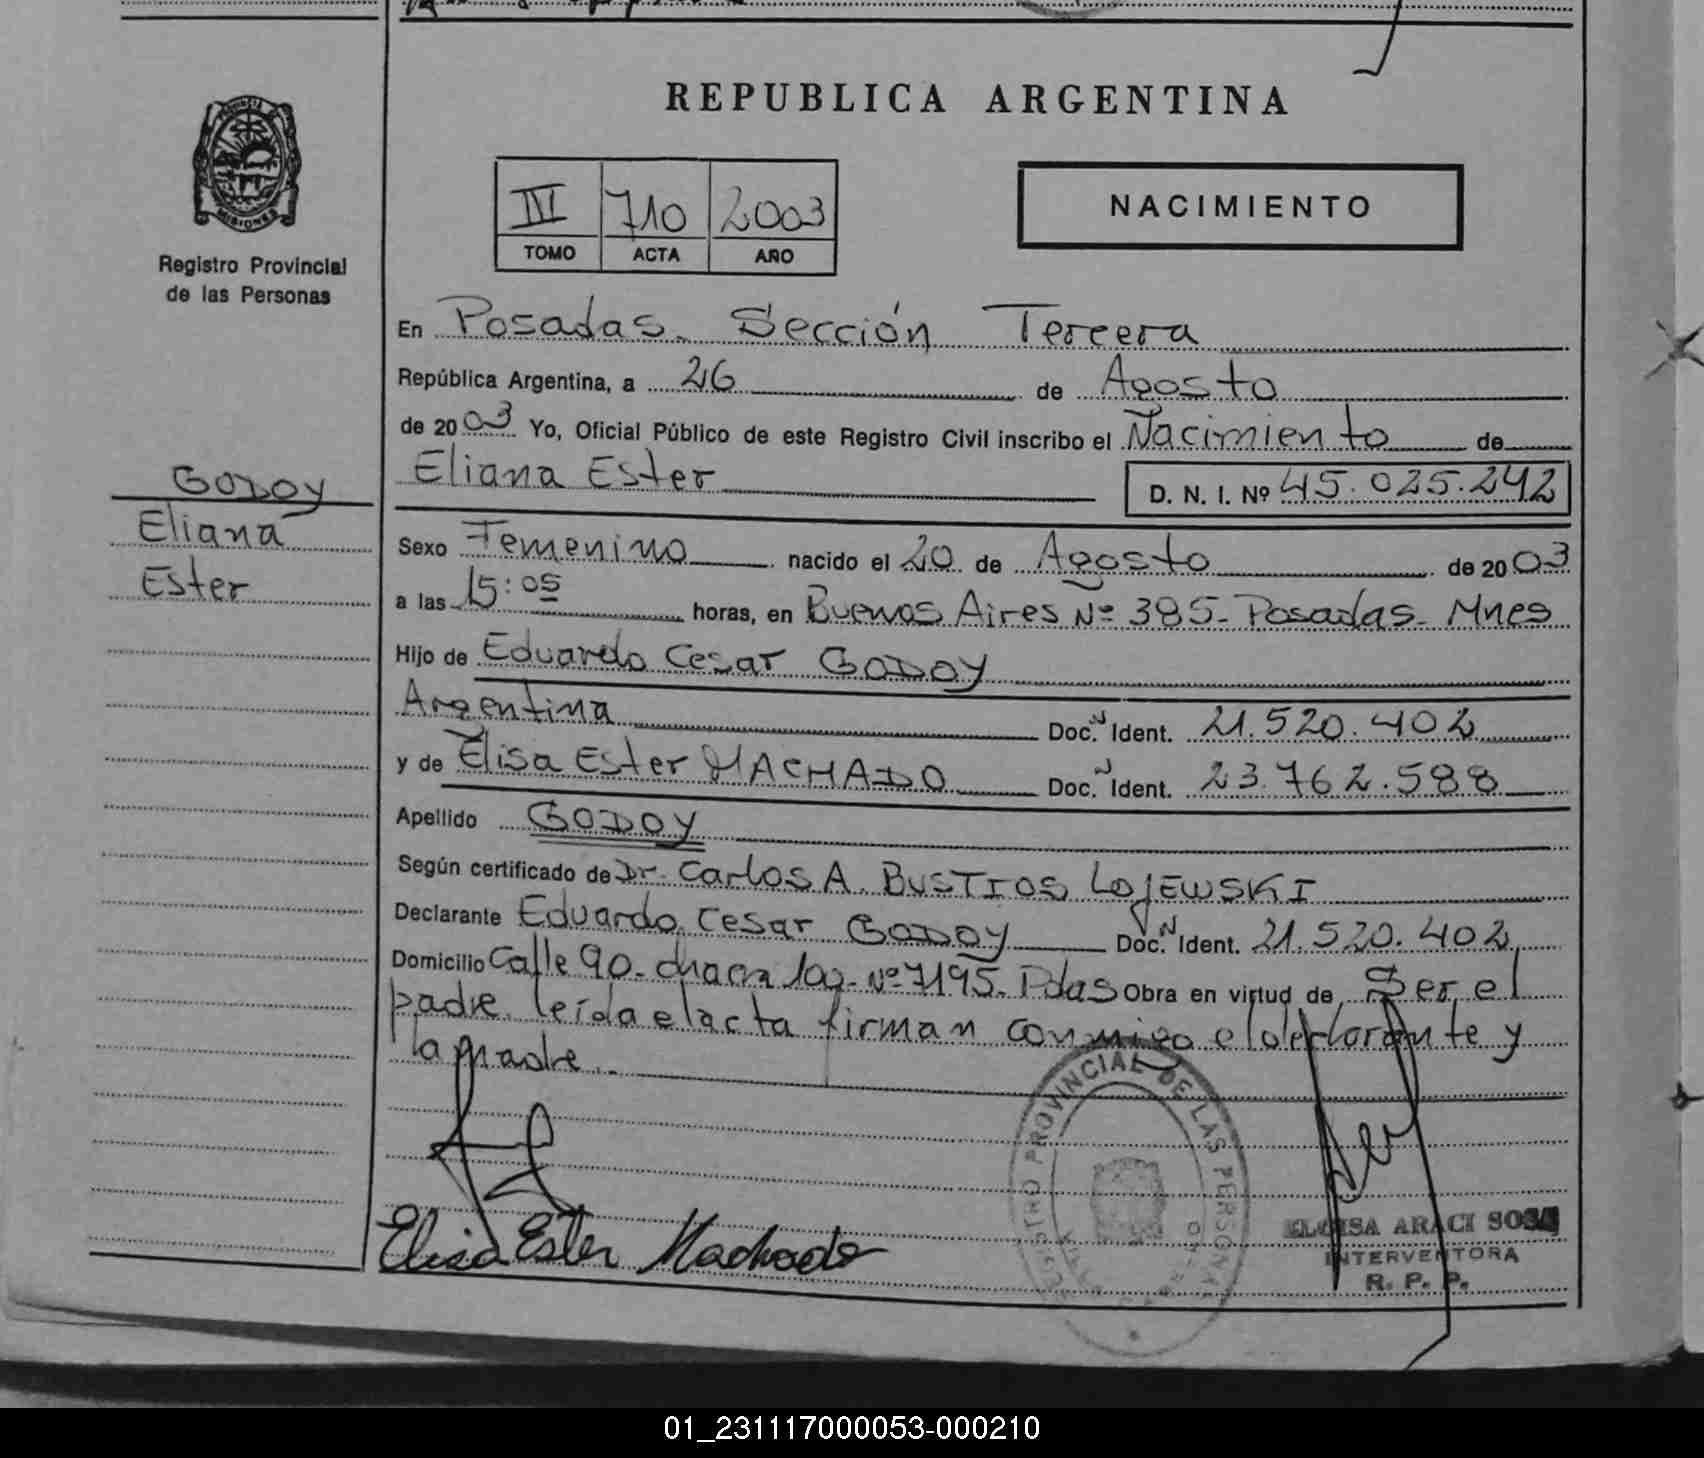 REPUBLICA ARGENTINA
MISIONES
Registro Provincial
de las Personas
III 710 2003
TOMO ACTA AÑO
NACIMIENTO
En Posadas. Sección Tercera
República Argentina, a 26 de Agosto
de 2003 Yo, Oficial Público de este Registro Civil inscribo el Nacimiento de
Eliana Ester
D. N. I. Nº 45.025.242
GODOY
Eliana
Ester
Sexo Femenino nacido el 20 de Agosto de 2003
a las 15:05 horas, en Buenos Aires Nº 385- Posadas- Mnes
Hijo de Eduardo Cesar GODOY
Argentina Doc. Ident. 21.520.402
y de Elisa Ester MACHADO Doc. Ident. 23.762.588
Apellido GODOY
Según certificado de Dr. Carlos A. BUSTIOS LOJEWSKI
Declarante Eduardo Cesar GODOY Doc. Ident. 21.520.402
Domicilio Calle 90- chacra Nº 7195- Pdas Obra en virtud de Ser el
padre leída el acta firman conmigo el declarante y
la madre.
Elisa Ester Machado
REGISTRO PROVINCIAL DE LAS PERSONAS
ELOISA ARACI SOSA
INTERVENTORA
R. P. P.
01_231117000053-000210